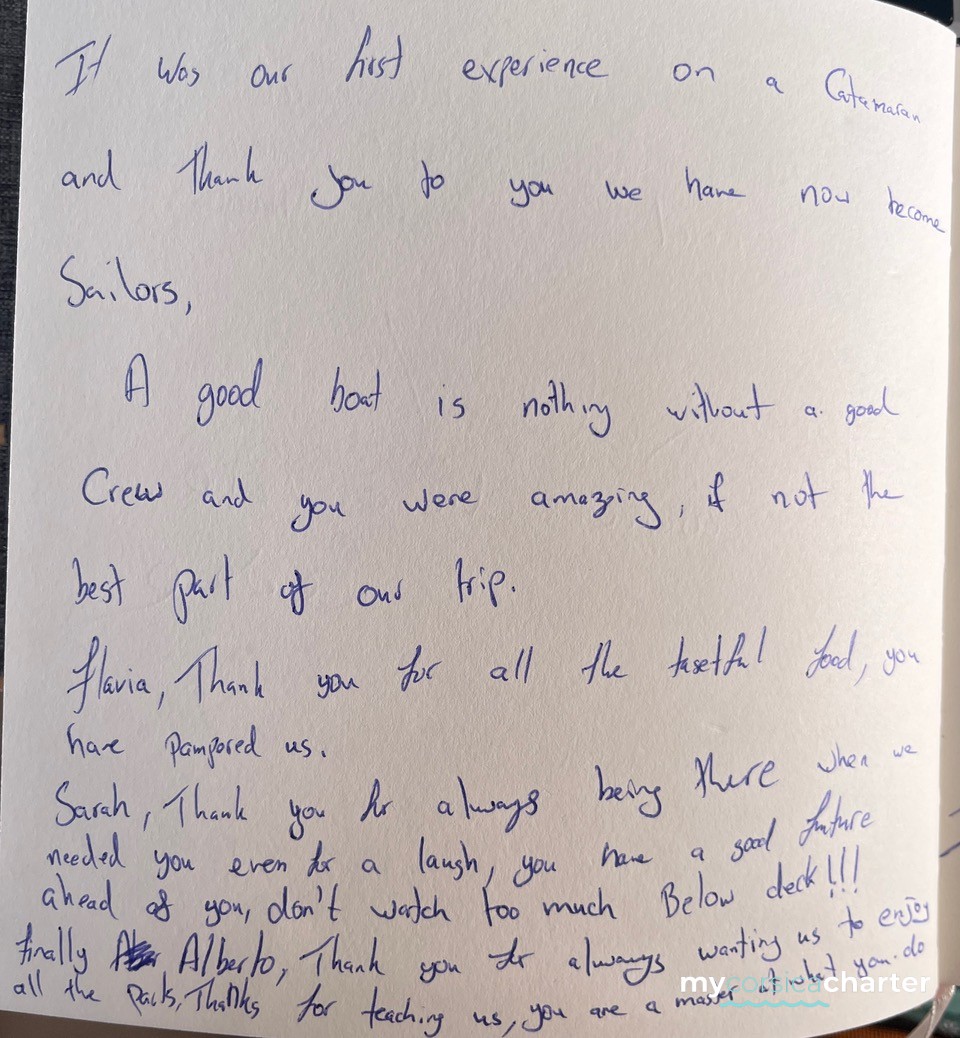 It was our first experience on a Catamaran
and Thank you to you we have now become
Sailors,
A good boat is nothing without a good
Crew and you were amazing, if not the
best part of our trip.
Flavia, Thank you for all the tasetful food, you
have pampored us.
Sarah, Thank you for always being there when we
needed you even for a laugh, you have a good future
ahead of you, don't watch too much Below deck!!!
finally Alberto, Thank you for always wanting us to enjoy
all the Parts, Thanks for teaching us, you are a master at what you do
mycorsicacharter